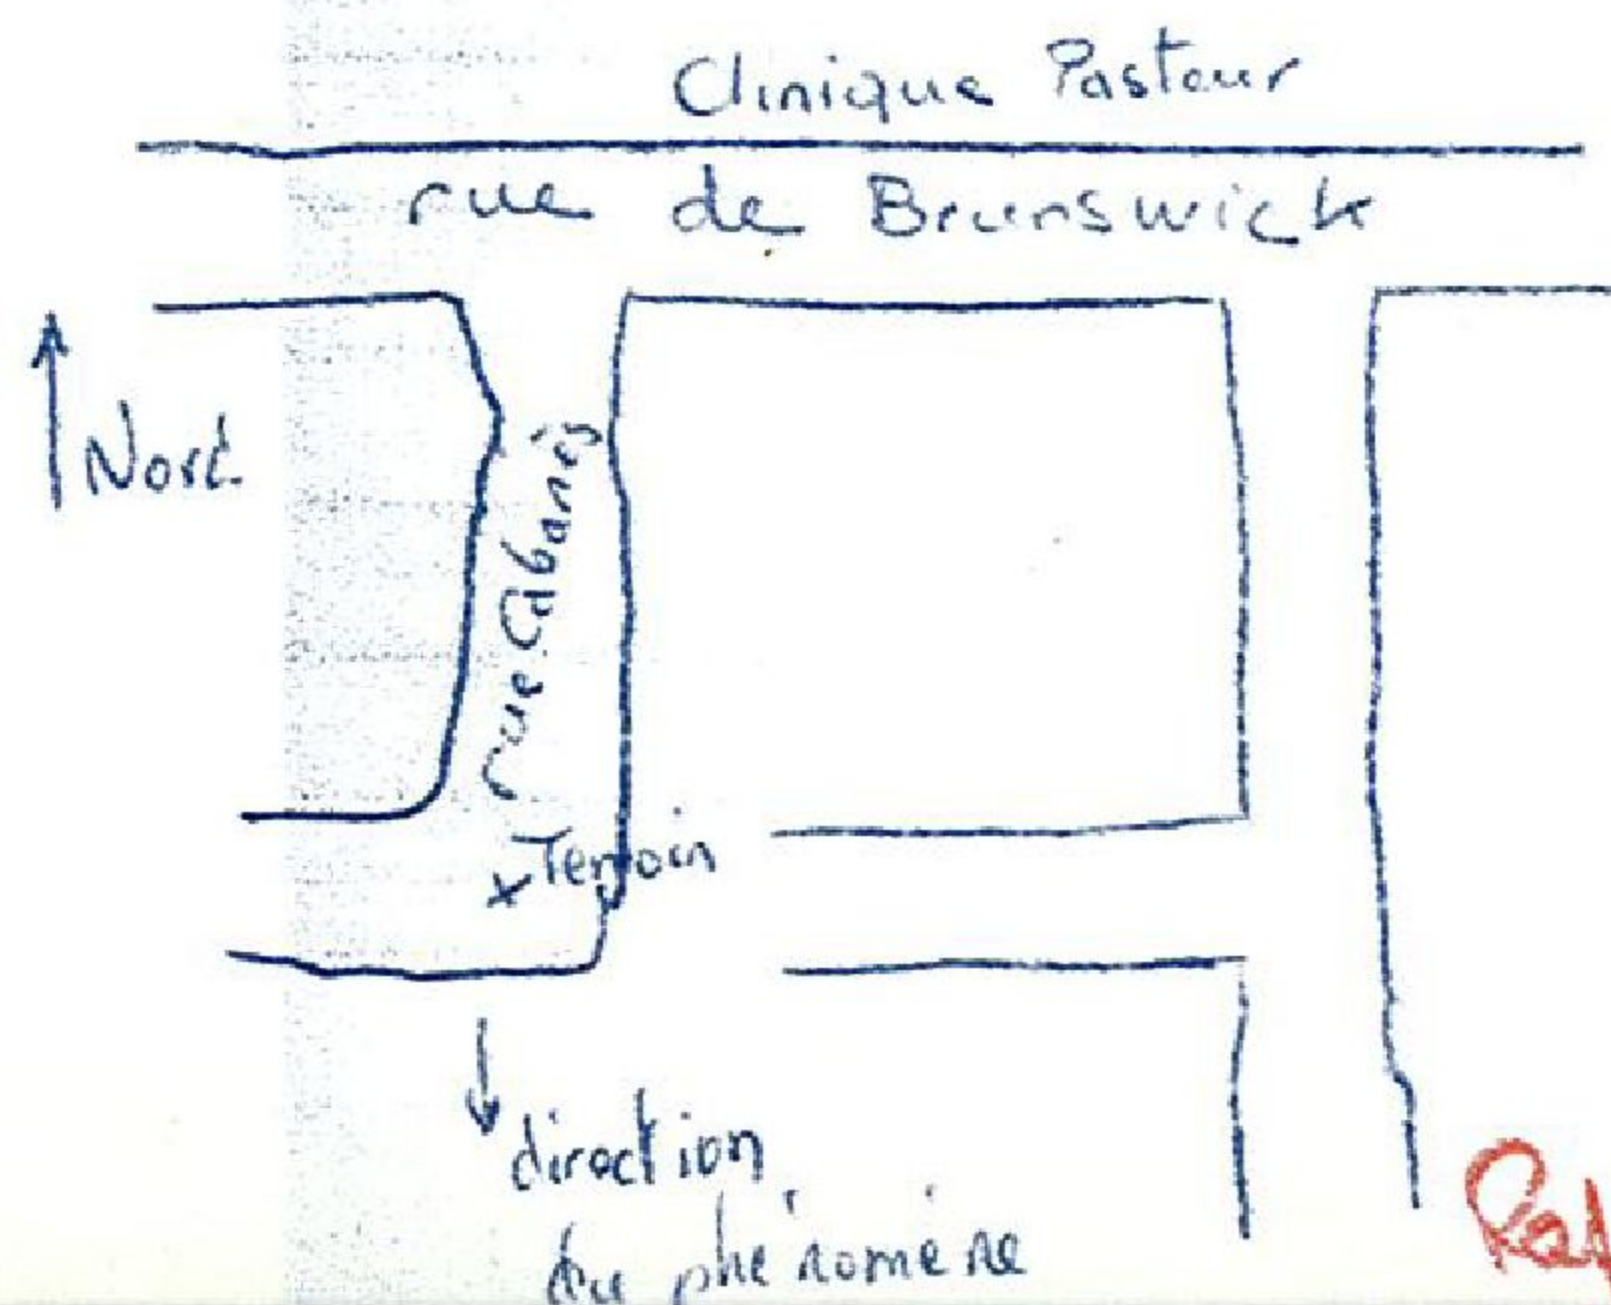 Clinique Pasteur
rue de Brunswick
Nord.
rue Cabanis
x Temoin
direction
du phénomène